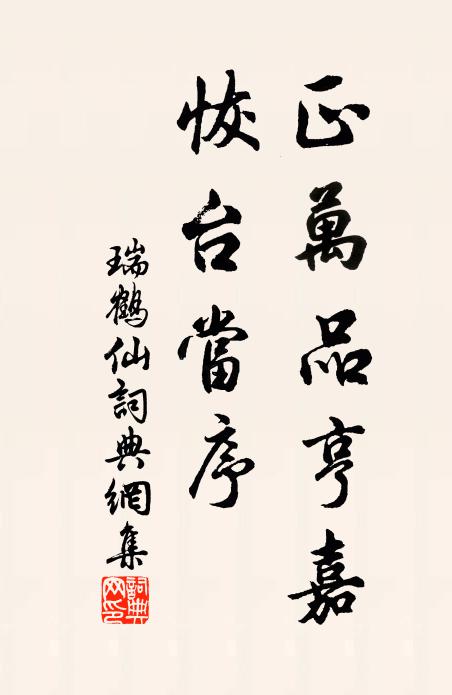 正萬品亨嘉
恢台當序
瑞鶴仙詞典網集
詞典网印